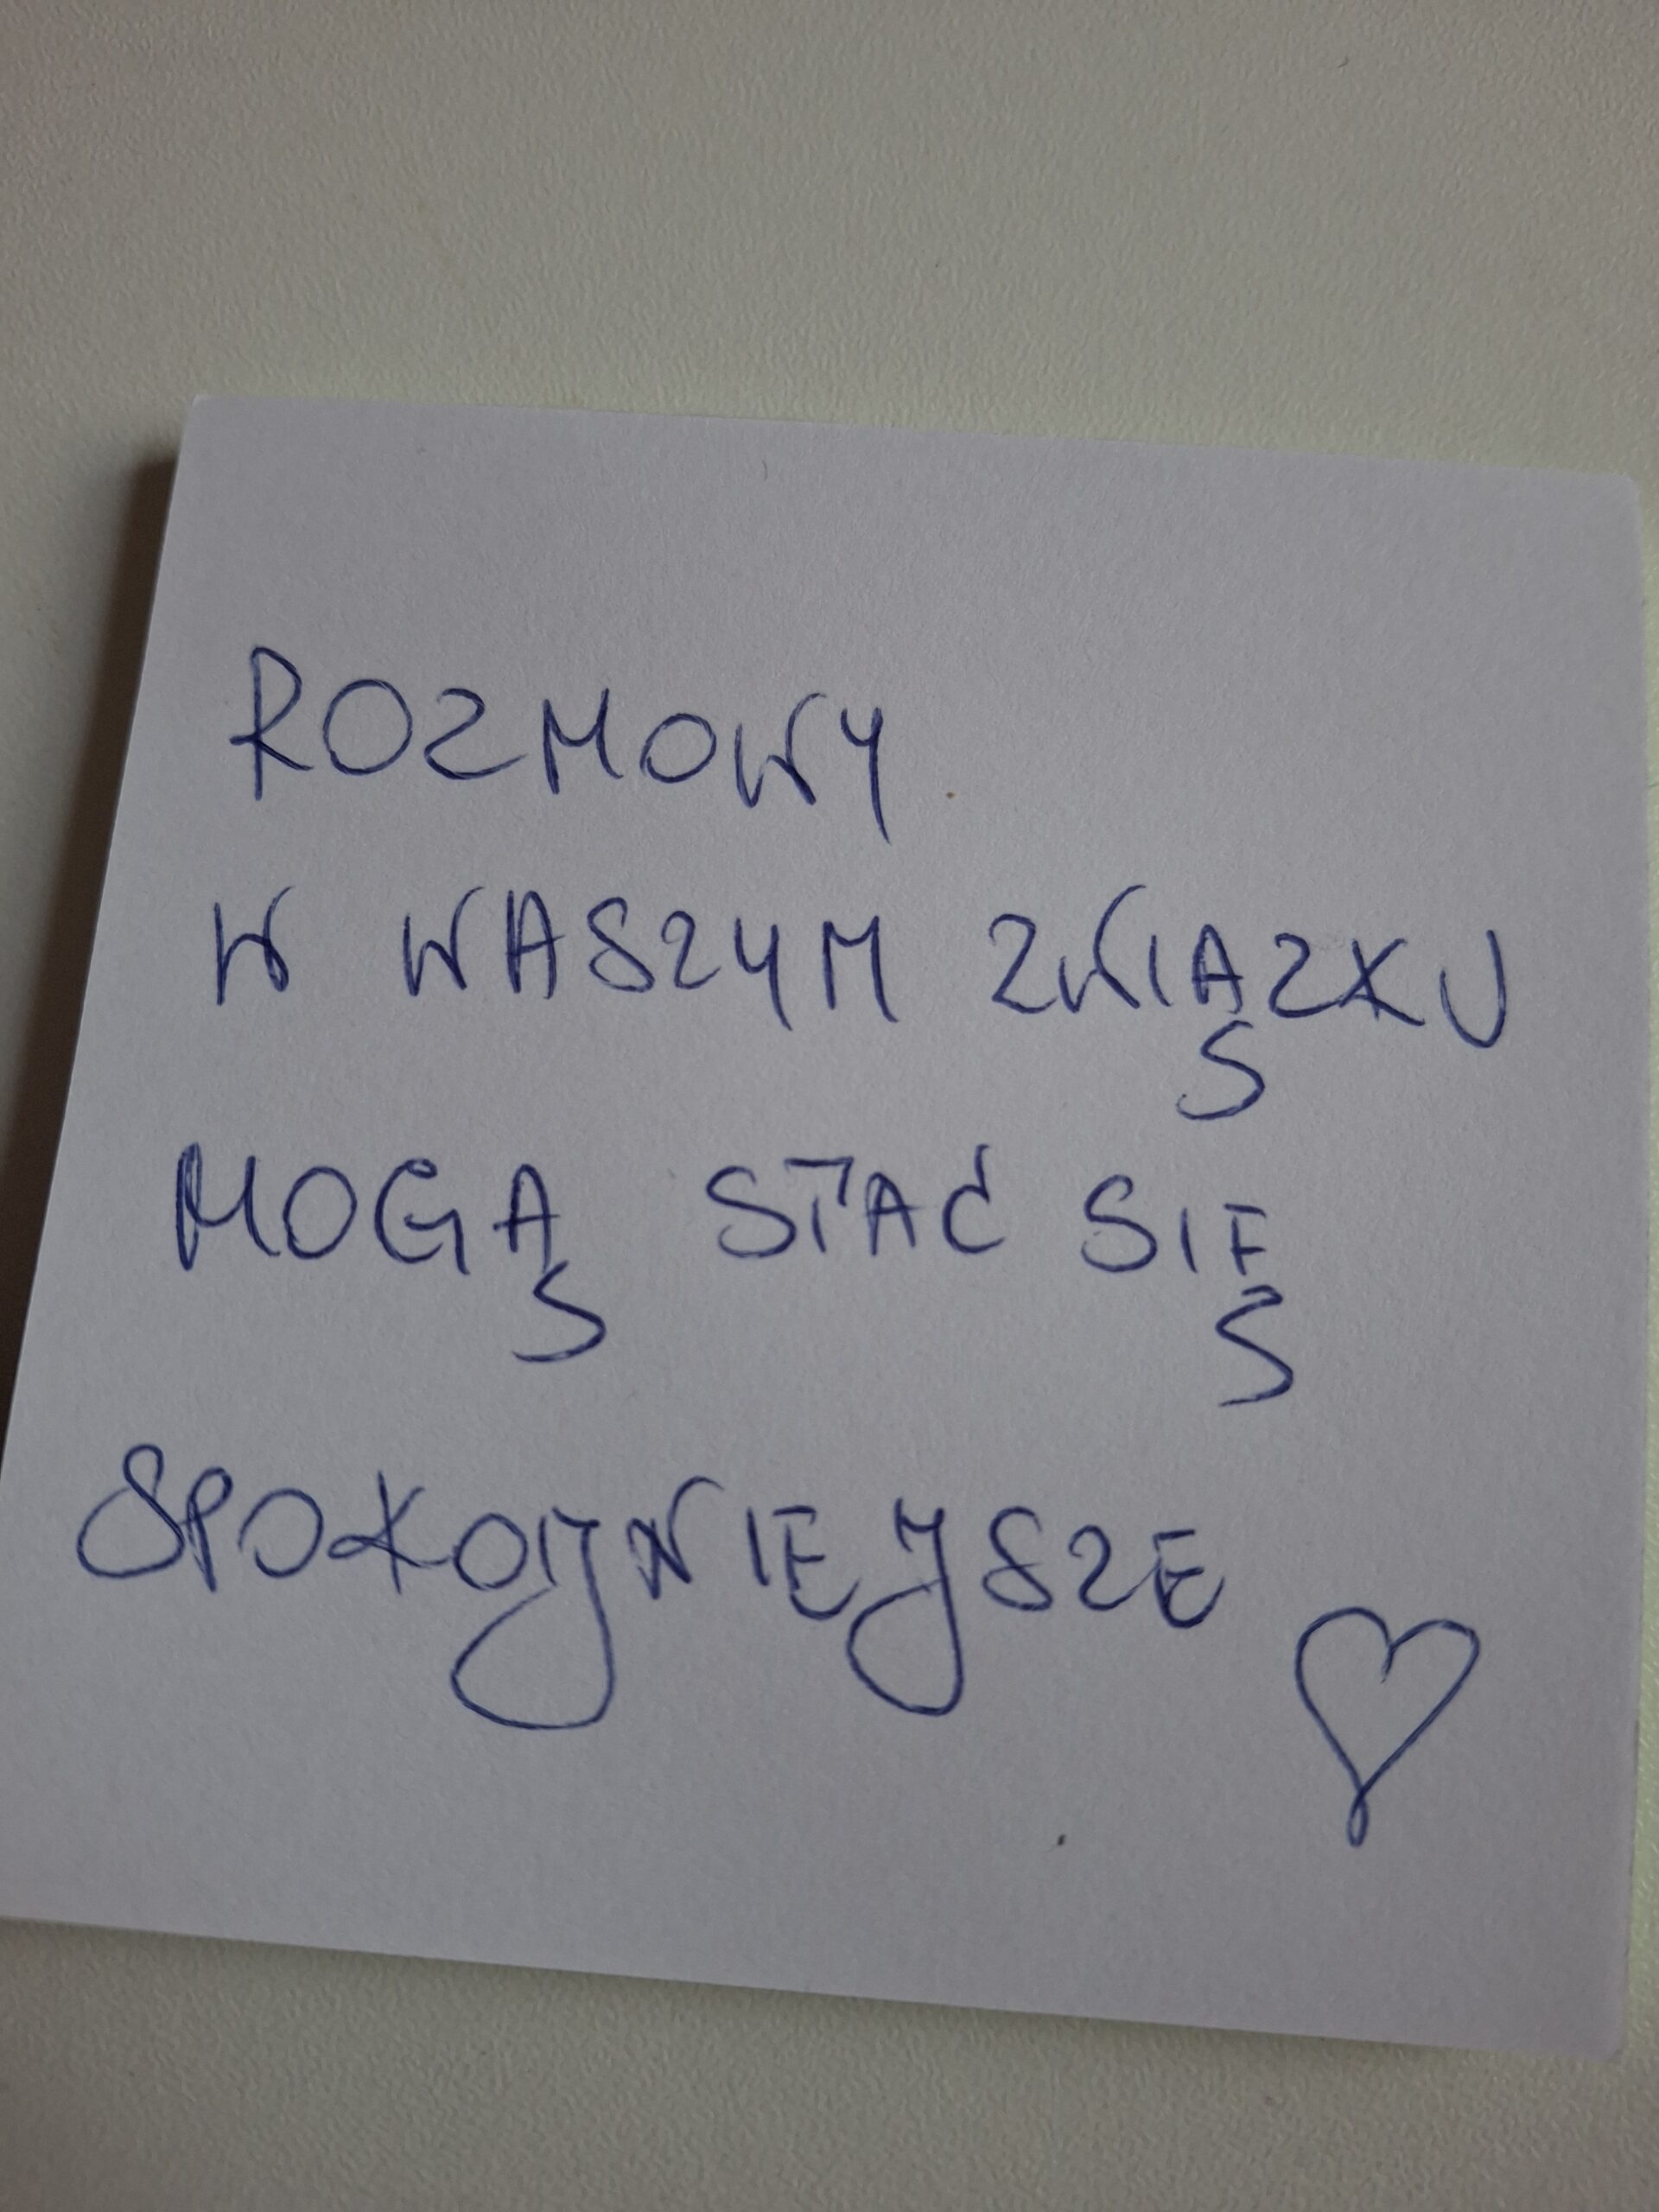 ROZMOWY
W WASZYM ZWIĄZKU
MOGĄ STAĆ SIĘ
SPOKOJNIEJSZE